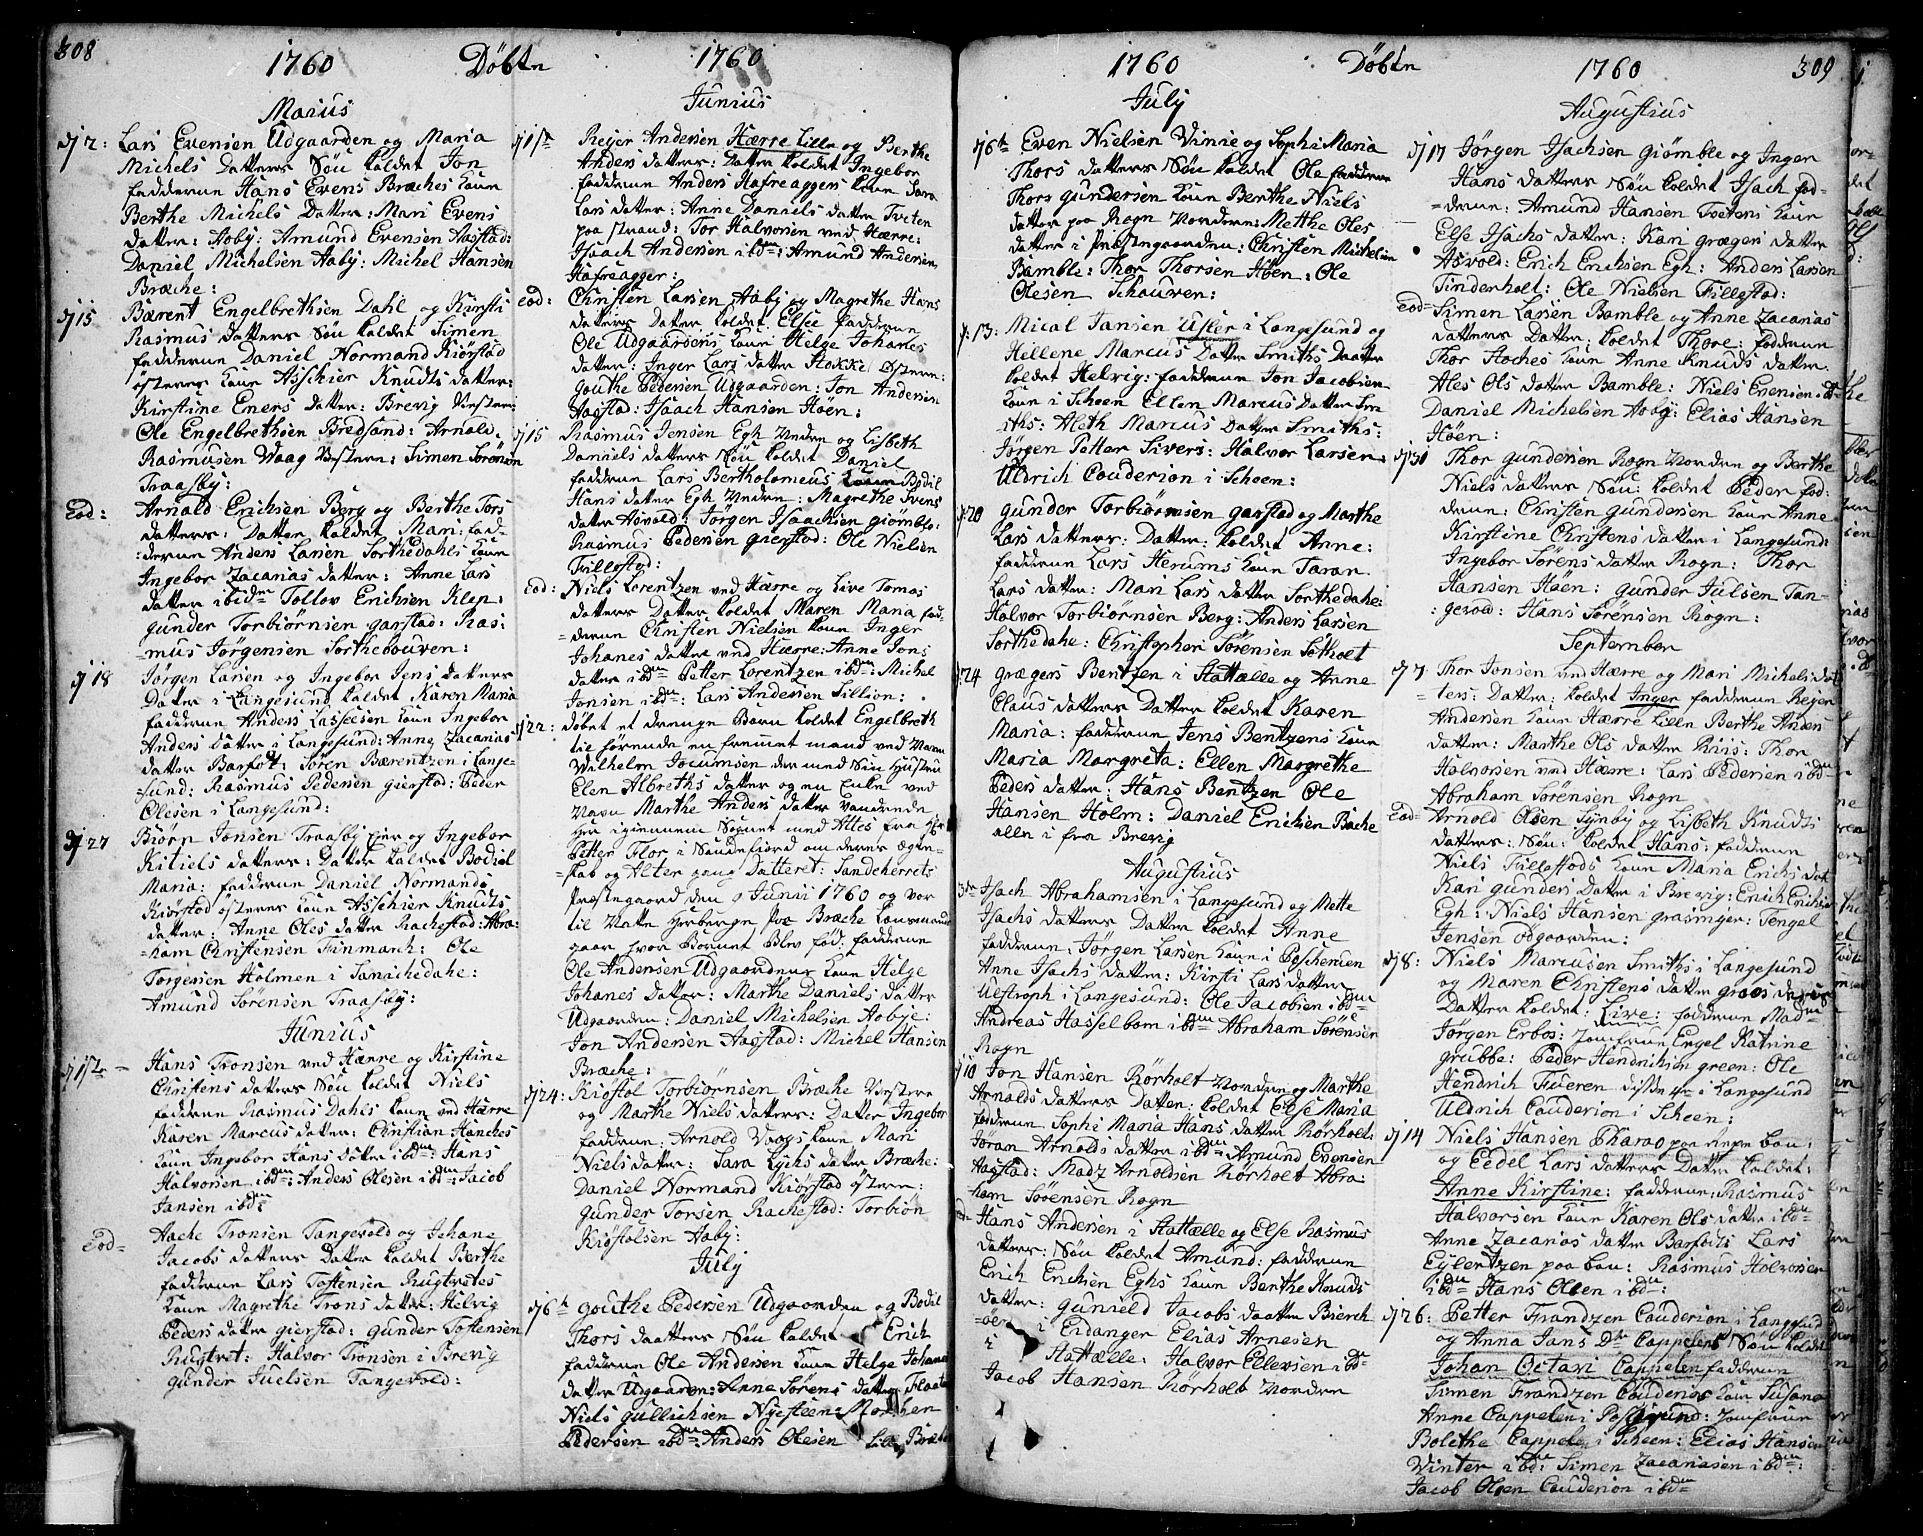 308
1760 Döbte
Maius
dj 2: Lars Evensen Udgaarden og Maria
Michels Datters Søn kaldet Jon
fadderne Hans Evens Bræches kone
Berthe Michels Datter: Mari Evens
datter: Aaby: Amund Evensen Aagstad:
Daniel Michelsen Aaby: Michel Hansen
Bræche:
dj 15 Bærent Engelbrethsen Dahl og Kirsti
Rasmus datters Søn kaldet Simen
fadderne Daniel Normand Kiørstad
østeres kone Asschier Knudts datter:
Kirstine Eners datter: Brevig Vestere:
Ole Engelbrethsen Bredsand: Arnold
Rasmusen Waag Vestere: Simen Sørensen
Traasby:
Eod: Arnold Erichsen Berg og Berthe Tors
datters: Datter kaldet Mari: fad-
derne Anders Larsen Sorthedahls kone
Ingebor Zacanias datter: Anne Lars
datter ibidm Tollov Erichsen Klep:
gunder Torbiørnsen garstad: Ras:
mus Jørgensen Sorthebouven:
dj 18 Jørgen Larsen og Ingebor Jens datters
Datter i Langesund kaldet Karen Maria
fadderne Anders Lassesen kone Ingebor
Anders datter i Langesund: Anne Zacanias
datter Barfodt: Søren Bærentzen i Lange-
sund: Rasmus Pedersen gierstad: Peder
Olesen i Langesund:
dj 27 Biørn Jonsen Traasby Eier og Ingebor
Kitiels datters: Datter kaldet Bodiel
Maria: fadderne Daniel Normands
Kiørstad østeres kone Asschier Knudts
datter: Anne Oles datter Rachestad: Abra:
ham Christensen Finmarch: Ole
Torgersen Holmen i Sanichedahe:
Amund Sørensen Traasby:
Junius
dj 1ste Hans Tronsen ved Hærre og Kirstine
Christens datters Søn kaldet Niels
fadderne Rasmus Dahls kone ved Hærre
Karen Marcus datter: Christian Hanches
kone Ingebor Hans datter ibdm: Hans
Halvorsen ibdm: Anders Olesen ibdm: Jacob
Jansen ibdm
Eod= Aache Tronsen Tangevold og Johane
Jacobs datters datter kaldet Berthe
fadderne Lars Tostensen Rugtvetes
kone Magrethe Trons datter: Helvig
Peders datter gierstad: gunder Tostensen
Rugtvet: Halvor Tronsen i Brevig
gunder Juelsen Tangevold:
1760
Junius
dj 1ste Reyer Andersen Hærre Lille og Berthe
Anders datters: Datter kaldet Ingebor
fadderne Anders Hafreaggers kone Sara
Lars datter: Anne Daniels datter Tveten
paa strand: Tor Halvorsen ved Hærre:
Isaach Andersen ibdm: Amund Andersen
Hafreagger:
eod: Christen Larsen Aaby og Magrethe Hans
datters Datter kaldet Elsee fadderne
Ole Udgaardens kone Helge Johanes
datter: Inger Lars datter Stokke Østere:
gouthe Pedersen Udgaarden: Jon Andersen
Aagstad: Isaach Hansen Høen:
dj 15 Rasmus Jensen Egh Nedre og Lisbeth
Daniels datters Søn kaldet Daniel
fadderne Lars Bertholomeus kone Bodil
Hans datter Egh Nedre: Magrethe Ivens
datter Asvold: Jørgen Isaachsen giømble:
Rasmus Pedersen gierstad: Ole Nielsen
Fillestad:
eod: Niels Lorentzen ved Hærre og Live Tomas
datters datter kaldet Maren Maria fad-
derne Christen Nielsen kone Inger
Johanes datter ved Hærre: Anne Jons
datter ibdm Petter Lorentzen ibdm: Michel
Jonsen ibdm: Lars Andersen Tillion:
dj 22: døbet et drenge Barn kaldet Engelbreth
tilhørende en fremmet mand ved Navn
Wilhelm Jocumsen der med Sin Hustru
Elen Albreths datter og en Enke ved
Navn Marthe Anders datter vandrende
her igiennem Sognet med Attes fra Hr
Petter Flor i Sandefiord om deres ægte-
skab og Alter gang Datteret: Sandeherrets
Præstegaard den 9 Junii 1760 og var
til Natte Herberge paa Bræche Lensmand
gaar hvor Barnet Blev fød: fadderne
Ole Andersen Udgaardens kone Helge
Johanes datter: Marthe Daniels datter
Udgaarden: Daniel Michelsen Aabye:
Jon Andersen Aagstad: Michel Hansen
Bræche:
dj 24: Kiøstol Torbiørnsen Bræche Vestere
og Marthe Niels datters: Datter Ingebor
fadderne: Arnold Vaags kone Mari
Niels datter: Sara Lychs datter Bræche:
Daniel Normand Kiørstad østere:
gunder Torsen Rachestad: Torbiøn
Kiøstolsen Aaby:
July
dj 6te gouthe Pedersen Udgaarden og Bodil
Thors daatters Søn kaldet Erich
fadderne Ole Andersen kone Helge Johanes
datter Udgaarden: Anne Sørens datter
Niels gullichsen Nysteen: Morthen
Pedersen ibdm: Anders Olesen Lille Bræche
1760 Döbte
July
dj 6te Even Nielsen Vinie og Sophi Maria
Thors datters Søn kaldet Ole fadderne
Thors gundersen kone Berthe Niels
datter paa Rogn Nordere: Methe Oles
datter i Præstegaarden: Christen Michelsen
Bamble: Thor Thorsen Høen: Ole
Olesen Schouven:
dj 13: Mical Jansen Usler i Langesund og
Hellene Marcus Datter Smiths Daatter
kaldet Helvig: fadderne Jon Jacobsen
kone i Scheen Ellen Marcus Datter Sm
iths: Aleth Marcus datter Smiths:
Jørgen Petter Sivers: Halvor Larsen
Uldrich Couderion i Scheen:
dj 20 gunder Torbiörnsen garstad og Marthe
Lars datters: Datter: kaldet Anne:
fadderne Lars Herums kone Taran
Lars datter: Mari Lars datter Sorthedahe:
Halvor Torbiørnsen Berg: Anders Larsen
Sorthedahe: Christopher Sörensen Sötholt
dj 24 grægers Bentzen i Stathælle og Anne
Claus datters Datter kaldet Karen
Maria: fadderne Jens Bentzens kone
Maria Margreta: Ellen Margrethe
Peders datter: Hans Bentzen Ole
Hansen Holm: Daniel Erichsen Bache
alle i fra Brevig
Augustius
3die Isach Abrahamsen i Langesund og Mette
Isachs datters Datter kaldet Anne
fadderne: Jörgen Larsen kone i Poschensen
Anne Isachs datter: Kirsti Lars datter
Uestroph i Langesund: Ole Jacobsen ibdm
Andreas Hasselbom ibdm Abraham Sørensen
Rogn
dj 10 Jon Hansen Rörholt Nordre og Marthe
Arnolds datters Datter: kaldet Else Maria
fadderne Sophi Maria Hans datter Rörholt:
Jöran Arnolds datter ibdm: Amund Evensen
Aagstad: Madz Arnoldsen Rörholt Abra:
ham Sörensen Rogn
eod= Hans Andersen i Stathælle og Else Rasmus
datters: Søn kaldet Amund: fadderne
Erich Erichsen Eghs kone Berthe Knuds
datter: gunield Jacobs daatter Bierch
i Eidanger Elias Arnesen
i Stathælle: Halvor Ellevsen ibdm
Jacob Hansen Rörholt Nordre
1760 309
Augustius
dj 17 Jörgen Isachsen Giömble og Inger
Hans datters Søn kaldet Isach fad-
derne: Amund Hansen Tvetens kone
Else Isachs datter: Kari grægers datter
Asvold: Erich Erichsen Egh: Anders Larsen
Tinderholt: Ole Nielsen Fillestad:
eod= Simen Larsen Bamble og Anne Zacanias
datters Datter: kaldet Thore: fadderne
Thor Aaches kone Anne Knuds datter.
Ales Ols datter Bamble: Niels Evensen ibdm
Daniel Michelsen Aaby: Elias Hansen
Höen:
dj 31 Thor gundersen Rogn Nordre og Berthe
Niels datters Søn: kaldet Peder fad:
derne: Christen gundersen kone Anne
Kirstine Christens datter i Langesund:
Ingebor Sørens datter Rogn: Thor
Hansen Höen: gunder Julsen Tan-
gevold: Hans Sørensen Rogn:
September
dj 7 Thor Jonsen ved Hærre og Mari Michels dat
ters: Datter: kaldet Inger fadderne Reyer
Andersen kone Hærre Lille Berthe Anders
datter: Marthe Ols datter Riis: Thor
Halvorsen ved Hærre: Lars Pedersen ibdm
Abraham Sørensen Rogn
Eod= Arnold Olsen Synby og Lisbeth Knudts
datters: Søn: kaldet Hans: fadderne
Niels Fillestads kone Maria Erichs dat
Kari gunders datter i Brevig: Erich Erichsen
Egh: Niels Hansen grasmyer: Tengel
Jensen Opgaarden:
dj 8: Niels Marcusen Smiths i Langesund
og Maren Christens datter
Datter kaldet: Live: fadderne Madme
Jørgen Erbos: Jomfrue Engel Katrine
grubbe: Peder Hendrichsen green: Ole
Hendrich Fueren disse 4re i Langesund
Uldrich Couderion i Scheen:
dj 14 Niels Hansen Pharao paa ringe bou:
og Eedel Lars datters Datter kaldet:
Anne Kirstine: fadderne: Rasmus
Halvorsen kone Karen Ols datter ibdm
Anne Zacanias datter Barfodts Lars
Eylertzen paa bou: Rasmus Halvorsen
ibdm Hans Olsen ibdm:
dj 26: Petter Frandzen Couderion i Langesund
og Anna Jans Dtr Cappelens Søn kaldet
Johan Octavi Cappelen fadderne
Simen Frandzen Couderios kone Susana
Anne Cappelen i Porsgrund: Jomfrue
Bolethe Cappelen i Scheen: Elias Hansen
Winter ibdm: Simen Zacariasen ibdm:
Jacob Olsen Couderion ibdm